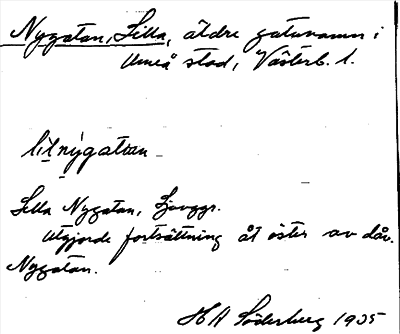 Nygatan, Lilla, äldre gatunamn i
Umeå stad, Västerb. l.
lilnygatan
Lilla Nygatan,
Utgjorde fortsättning åt öster av dåv.
Nygatan.
H A Söderberg 1935